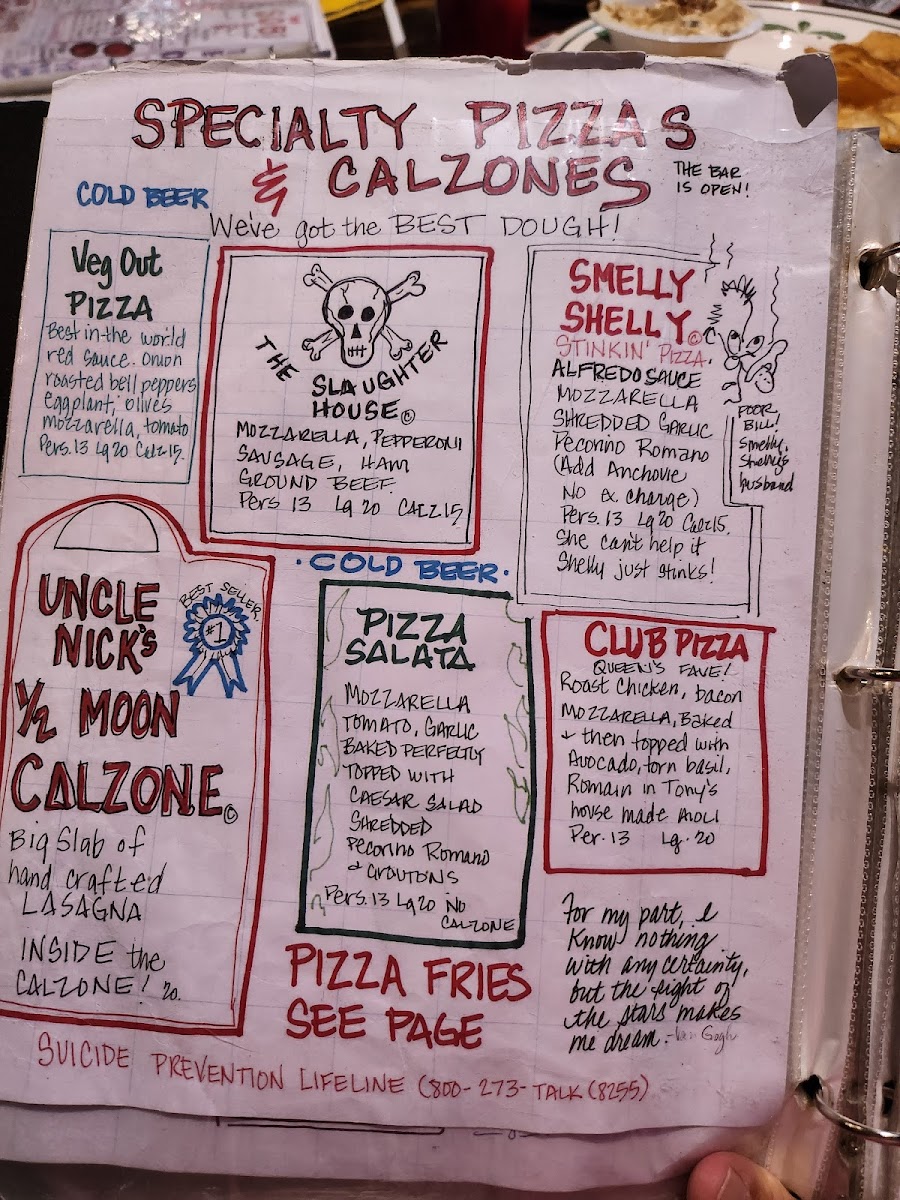 SPECIALTY PIZZAS
& CALZONES
THE BAR
IS OPEN!
COLD BEER
We've got the BEST DOUGH!
Veg Out
PIZZA
Best in the world
red sauce. onion
roasted bell peppers
eggplant, olives
mozzarella, tomato
Pers. 13 Lg 20 Calz 15.
THE SLAUGHTER
HOUSE ©
MOZZARELLA, PEPPERONI
SAUSAGE, HAM
GROUND BEEF.
Pers 13 Lg 20 CALZ. 15
SMELLY
SHELLY ©
STINKIN' PIZZA.
ALFREDO SAUCE
MOZZARELLA
SHREDDED GARLIC
Pecorino Romano
(Add Anchovie
No ex. change)
Pers. 13 Lg 20 Calz 15.
She can't help it
Shelly just stinks!
POOR
BILL!
Smelly,
Shelly's
husband
UNCLE
NICK'S
1/2 MOON
CALZONE ©
BEST SELLER.
#1
Big Slab of
hand crafted
LASAGNA
INSIDE the
CALZONE! 20.
· COLD BEER ·
PIZZA
SALATA
MOZZARELLA
TOMATO, GARLIC
BAKED PERFECTLY
TOPPED WITH
CAESAR SALAD
SHREDDED
Pecorino Romano
& CROUTONS
Pers. 13 Lg 20 No
CALZONE
CLUB PIZZA
QUEEN'S FAVE!
Roast Chicken, bacon
MOZZARELLA, Baked
& then topped with
Avocado, torn basil,
Romain in Tony's
house made AIOLI
Per. 13 Lg. 20
PIZZA FRIES
SEE PAGE
For my part, I
Know nothing
with any certainty,
but the sight of
the stars makes
me dream. - Van Gogh
SUICIDE PREVENTION LIFELINE (800-273-TALK (8255)